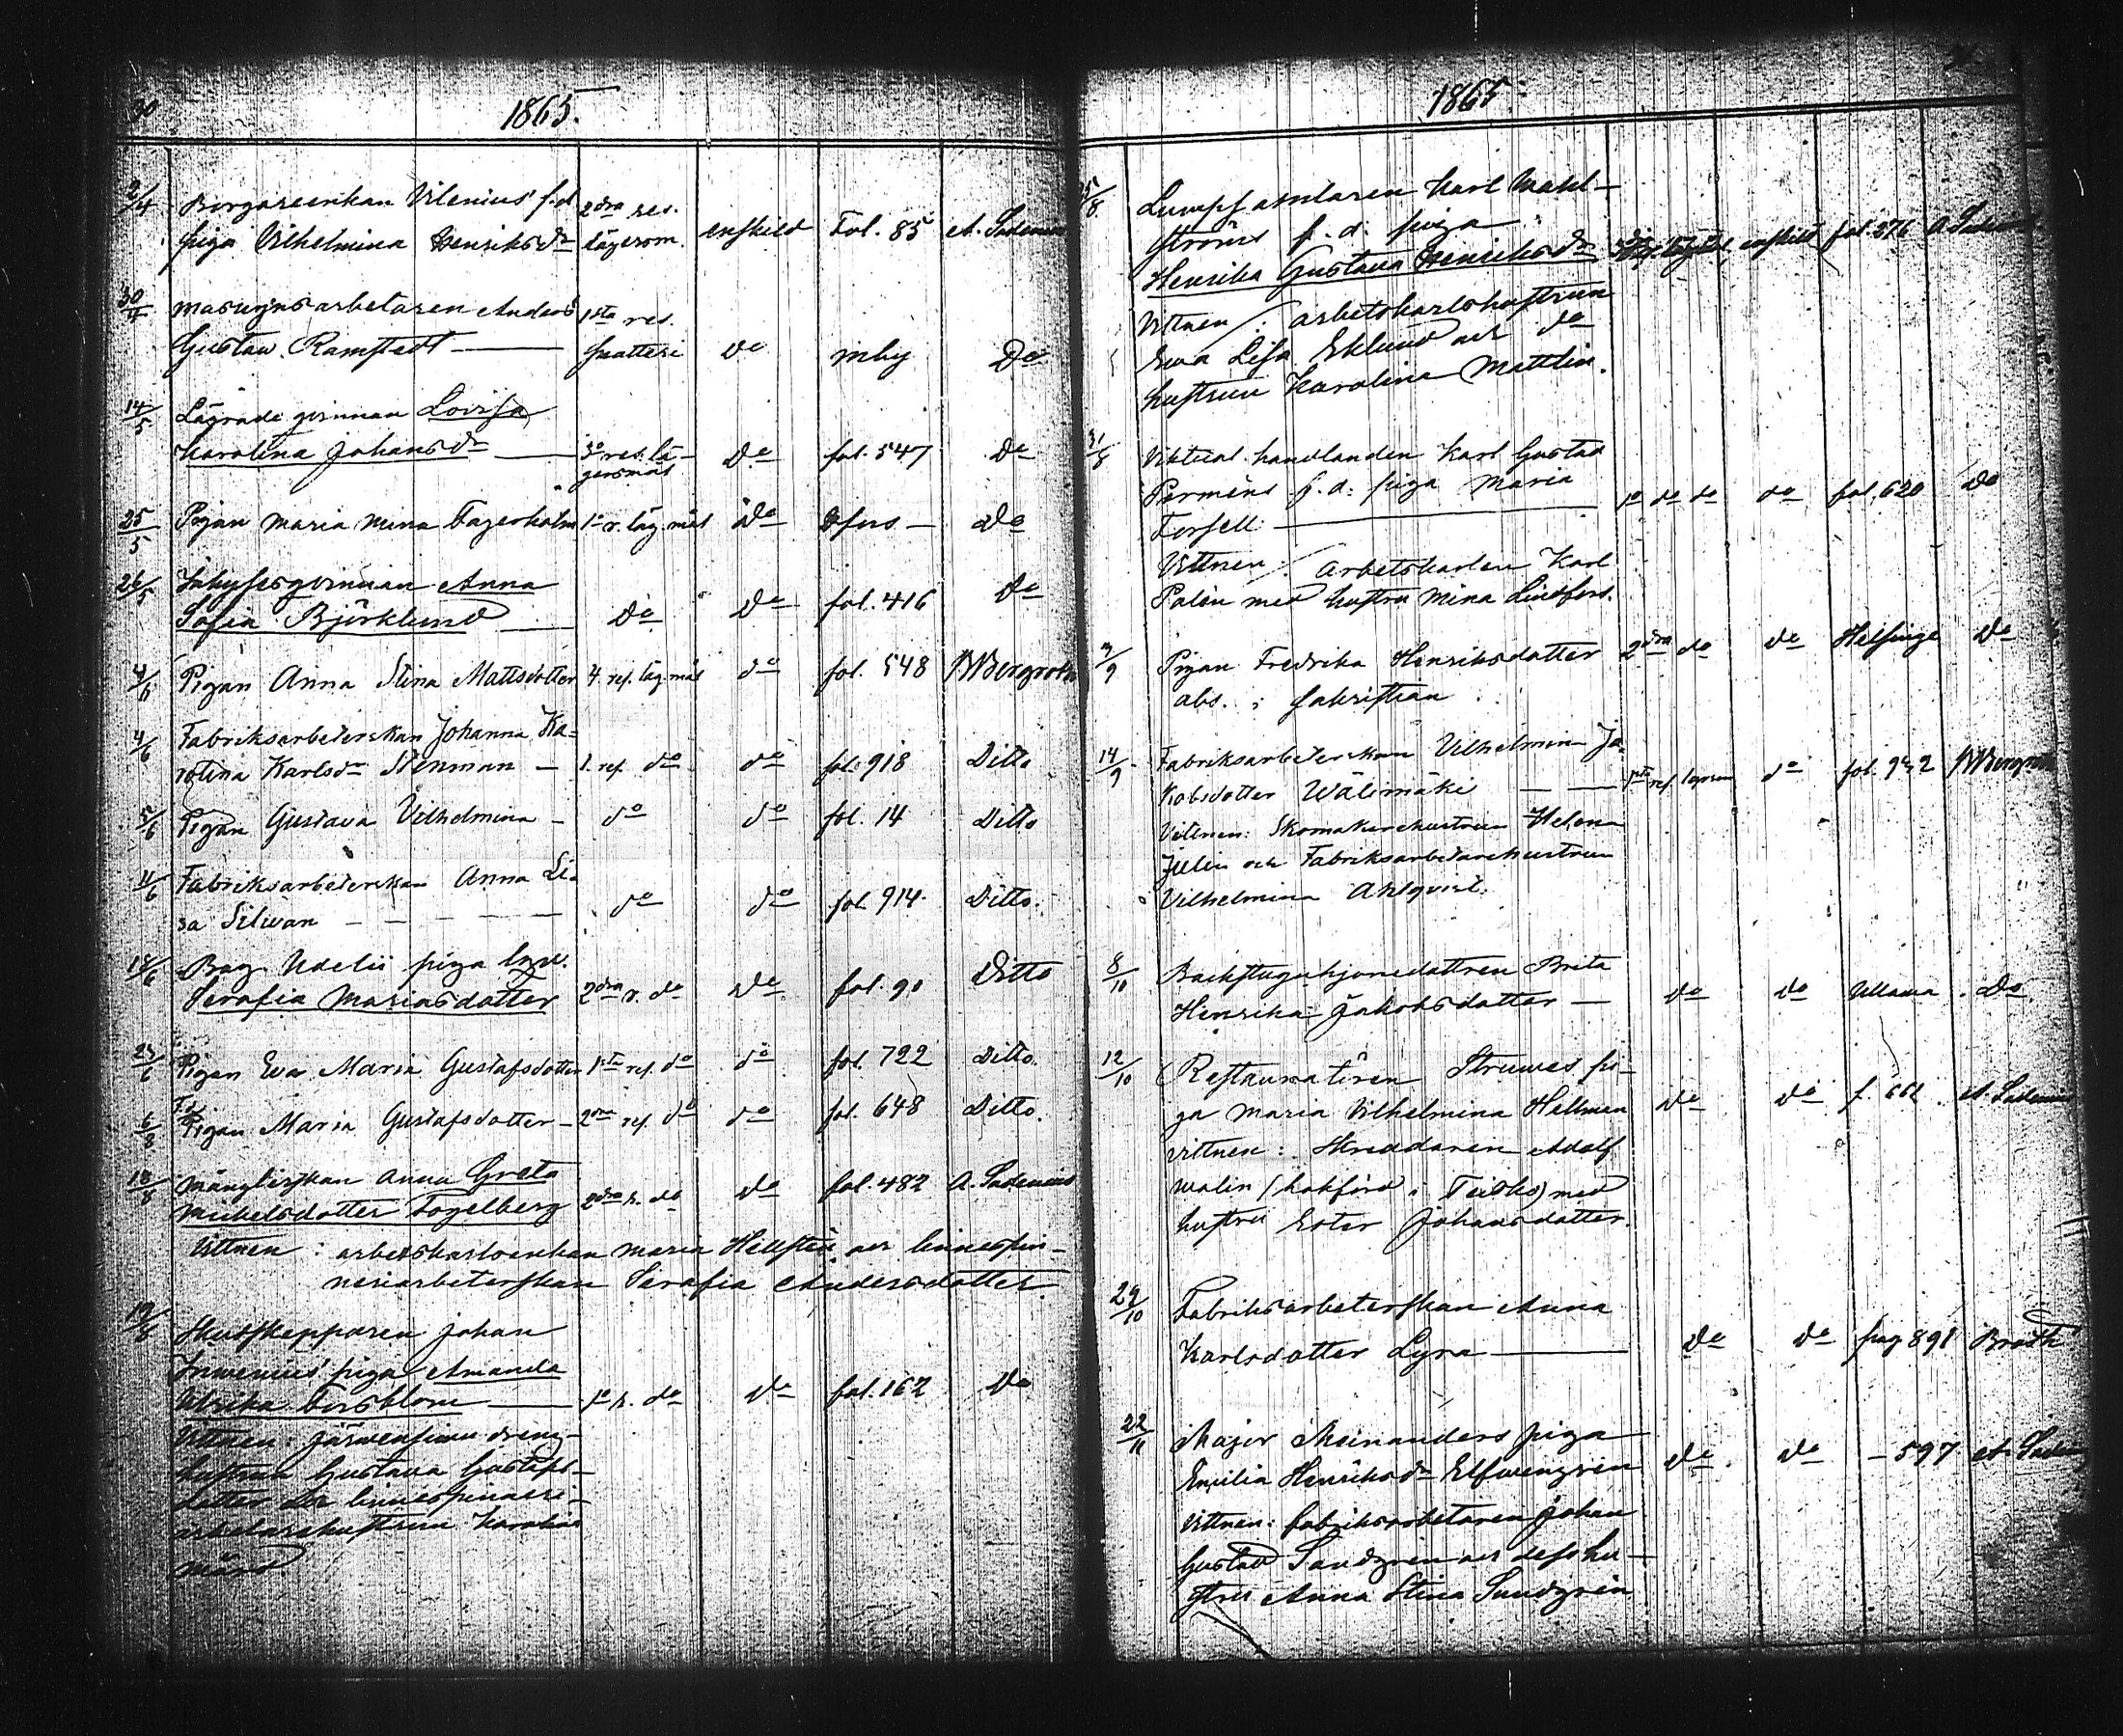 30
1865.
2/4 Borgareenkan Vilenius' f.d. 2dra res.
piga Vilhelmina Henriksdr lägersm. enskild Fol. 85 A. Sadenius
30/4 Masugnsarbetaren Anders 1sta res.
Gustav Ramstedt — do inhy Do
14/5 Lägrade qvinnan Lovisa
Karolina Johansdr — 3e res. lä- Do fol. 547 Do
gersmål
25/5 Pigan Maria Mina Fagerholm 1e r. läg.mål Do Do
26/5 Inhysesqvinnan Anna
Sofia Björklund — Do Do fol. 416 Do
4/6 Pigan Anna Stina Mattsdotter 4. res. läg.mål do fol. 548 Bergroth
4/6 Fabriksarbeterskan Johanna Ka-
rolina Karlsdr Stenman — 1. res. do do fol. 918 Ditto
5/6 Pigan Gustava Vilhelmina — do do fol. 14 Ditto
11/6 Fabriksarbeterskan Anna Li-
sa Silwan — — — — do do fol. 914. Ditto.
Bag. Udelii piga
Serafia Mariasdotter 2dra r. do Do fol. 90 Ditto
Pigan Eva Maria Gustafsdotter 1sta res. do do fol. 722 Ditto.
6/8 F.d. Pigan Maria Gustafsdotter — 2dra res. do do fol. 648 Ditto.
18/8 Månglerskan Anna Greta
Mickelsdotter Fogelberg 2dra r. do Do fol. 482 A. Sadenius
Vittnen: arbetskarlsenkan Maria Hellsten och linnespin-
neriarbeterskan Serafia Andersdotter.
19/8 Skutskepparen Johan
Inwenius' piga Amanda
Ulrika Forsblom — 1e r. do Do fol. 162 Do
Vittnen: dreng-
hustrun Gustava Gustafs-
dotter och linnespinneri-
arbetarehustrun Karolina
Mård
1865.
Lumpsamlaren Karl Wahl-
ströms f.d. piga
Henrika Gustava Henriksdr enskild fol. 276 A. Sadenius
Vittnen: arbetskarlshustrun
Ewa Lisa Eklund och do
hustrun Karolina Mattlin.
31/8 Viktualhandlanden Karl Gustav
Perméns f.d. piga Maria
Forsell: — 1e do do do fol. 620 Do
Vittnen: Arbetskarlen Karl
Palén med hustru Mina Lindfors.
7/9 Pigan Fredrika Henriksdotter 2dra do Do Helsinge Do
abs. i sakristian.
14/9 Fabriksarbeterskan Vilhelmina Ja-
kobsdotter Wälimäki — — 1sta res. do fol. 932 Bergroth
Vittnen: Skomakarehustrun Helena
Julin och Fabriksarbetarehustrun
Vilhelmina Ahlqvist.
8/10 Backstuguhjonedottren Brita
Henrika Jakobsdotter — Do Do Ullawa Do
12/10 Restauratören Struwes pi-
ga Maria Vilhelmina Hellman Do Do f. 661 A. Sadenius
vittnen: Skreddaren Adolf
Walin (bokförd i Teisko) med
hustru Ester Johansdotter.
29/10 Fabriksarbeterskan Anna
Karlsdotter Lyra — Do Do pag 891 Broth
22/11 Major Meinanders piga
Emilia Henriksdr Elfwengren Do Do — 597 A. Sadenius
Vittnen: fabriksarbetaren Johan
Gustav Sandgren och dess hu-
stru Anna Stina Sundgren